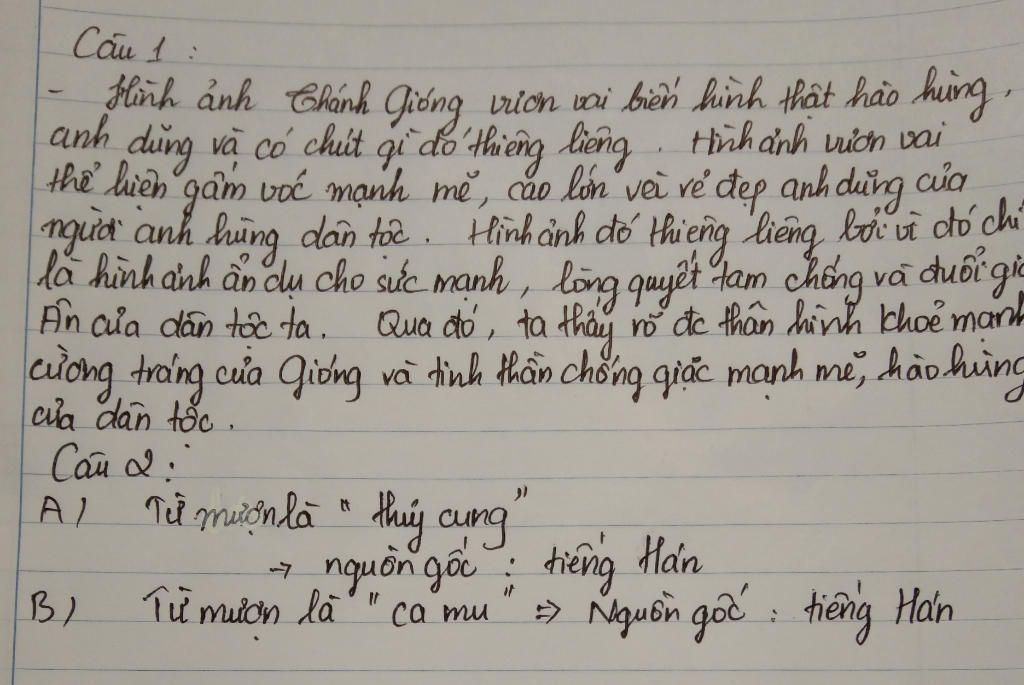 Câu 1 :
- Hình ảnh Thánh Gióng vươn vai biến hình thật hào hùng,
anh dũng và có chút gì đó thiêng liêng. Hình ảnh vươn vai
thể hiện gấm vóc mạnh mẽ, cao lớn với vẻ đẹp anh dũng của
người anh hùng dân tộc. Hình ảnh đó thiêng liêng bởi vì đó chí
là hình ảnh ẩn dụ cho sức mạnh, lòng quyết tâm chống và đuổi giặ
Ân của dân tộc ta. Qua đó, ta thấy rõ đc thân hình khoẻ mạnh
cường tráng của Gióng và tinh thần chống giặc mạnh mẽ, hào hùng
của dân tộc.
Câu 2 :
A) Từ mượn là " thuỷ cung"
→ nguồn gốc : tiếng Hán
B) Từ mượn là " ca mu " => Nguồn gốc : tiếng Hán